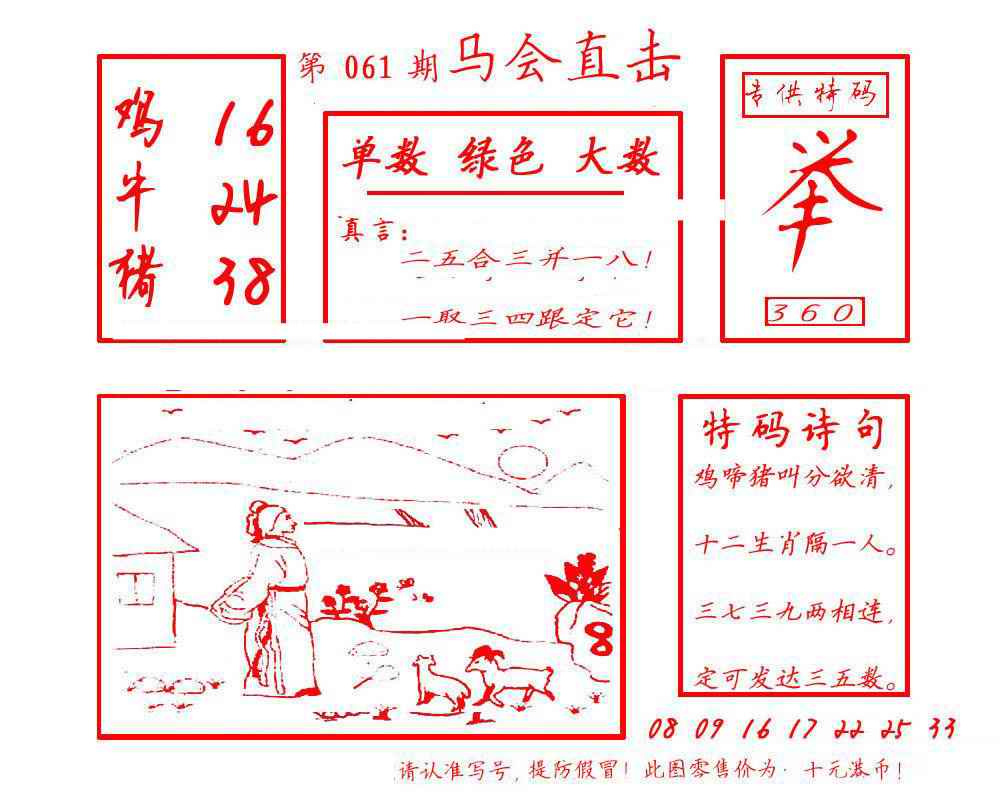 第 061 期 马会直击
鸡 16
牛 24
猪 38
单数 绿色 大数
真言：
二五合三并一八！
一取三四跟定它！
专供特码
举
360
8
特码诗句
鸡啼猪叫分欲清，
十二生肖隔一人。
三七三九两相连，
定可发达三五数。
08 09 16 17 22 25 33
请认准写号，提防假冒！此图零售价为·十元港币！